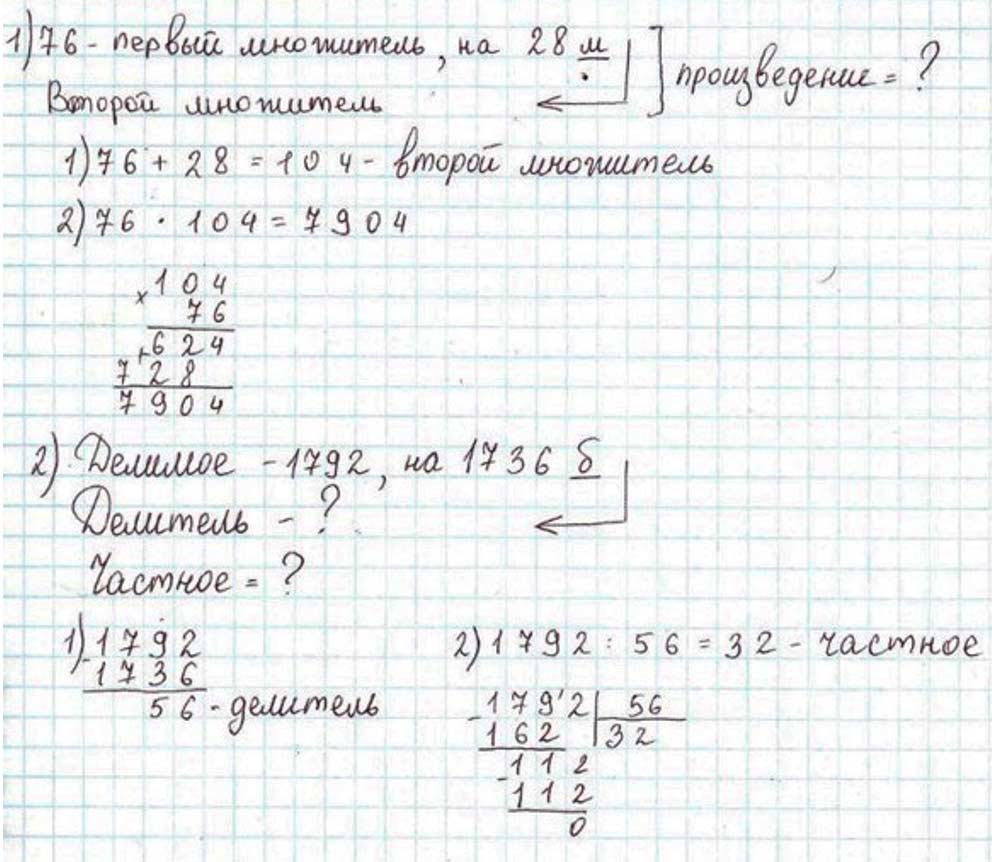 1) 76 - первый множитель, на 28 м ] произведение = ?
Второй множитель
1) 76 + 28 = 104 - второй множитель
2) 76 · 104 = 7904
× 104
76
+ 624
728
7904
2) Делимое - 1792, на 1736 б
Делитель - ?
Частное = ?
1) 1792
- 1736
56 - делитель
2) 1792 : 56 = 32 - частное
- 1792 | 56
162 | 32
- 112
112
0